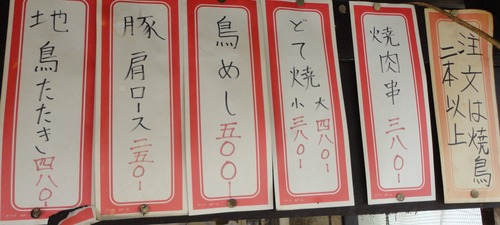 注文は焼鳥
二本以上
焼肉串 三八〇ー
どて焼 大 四八〇ー
小 三八〇ー
鳥めし 五〇〇ー
豚肩ロース 二五〇ー
地鳥たたき 四八〇ー